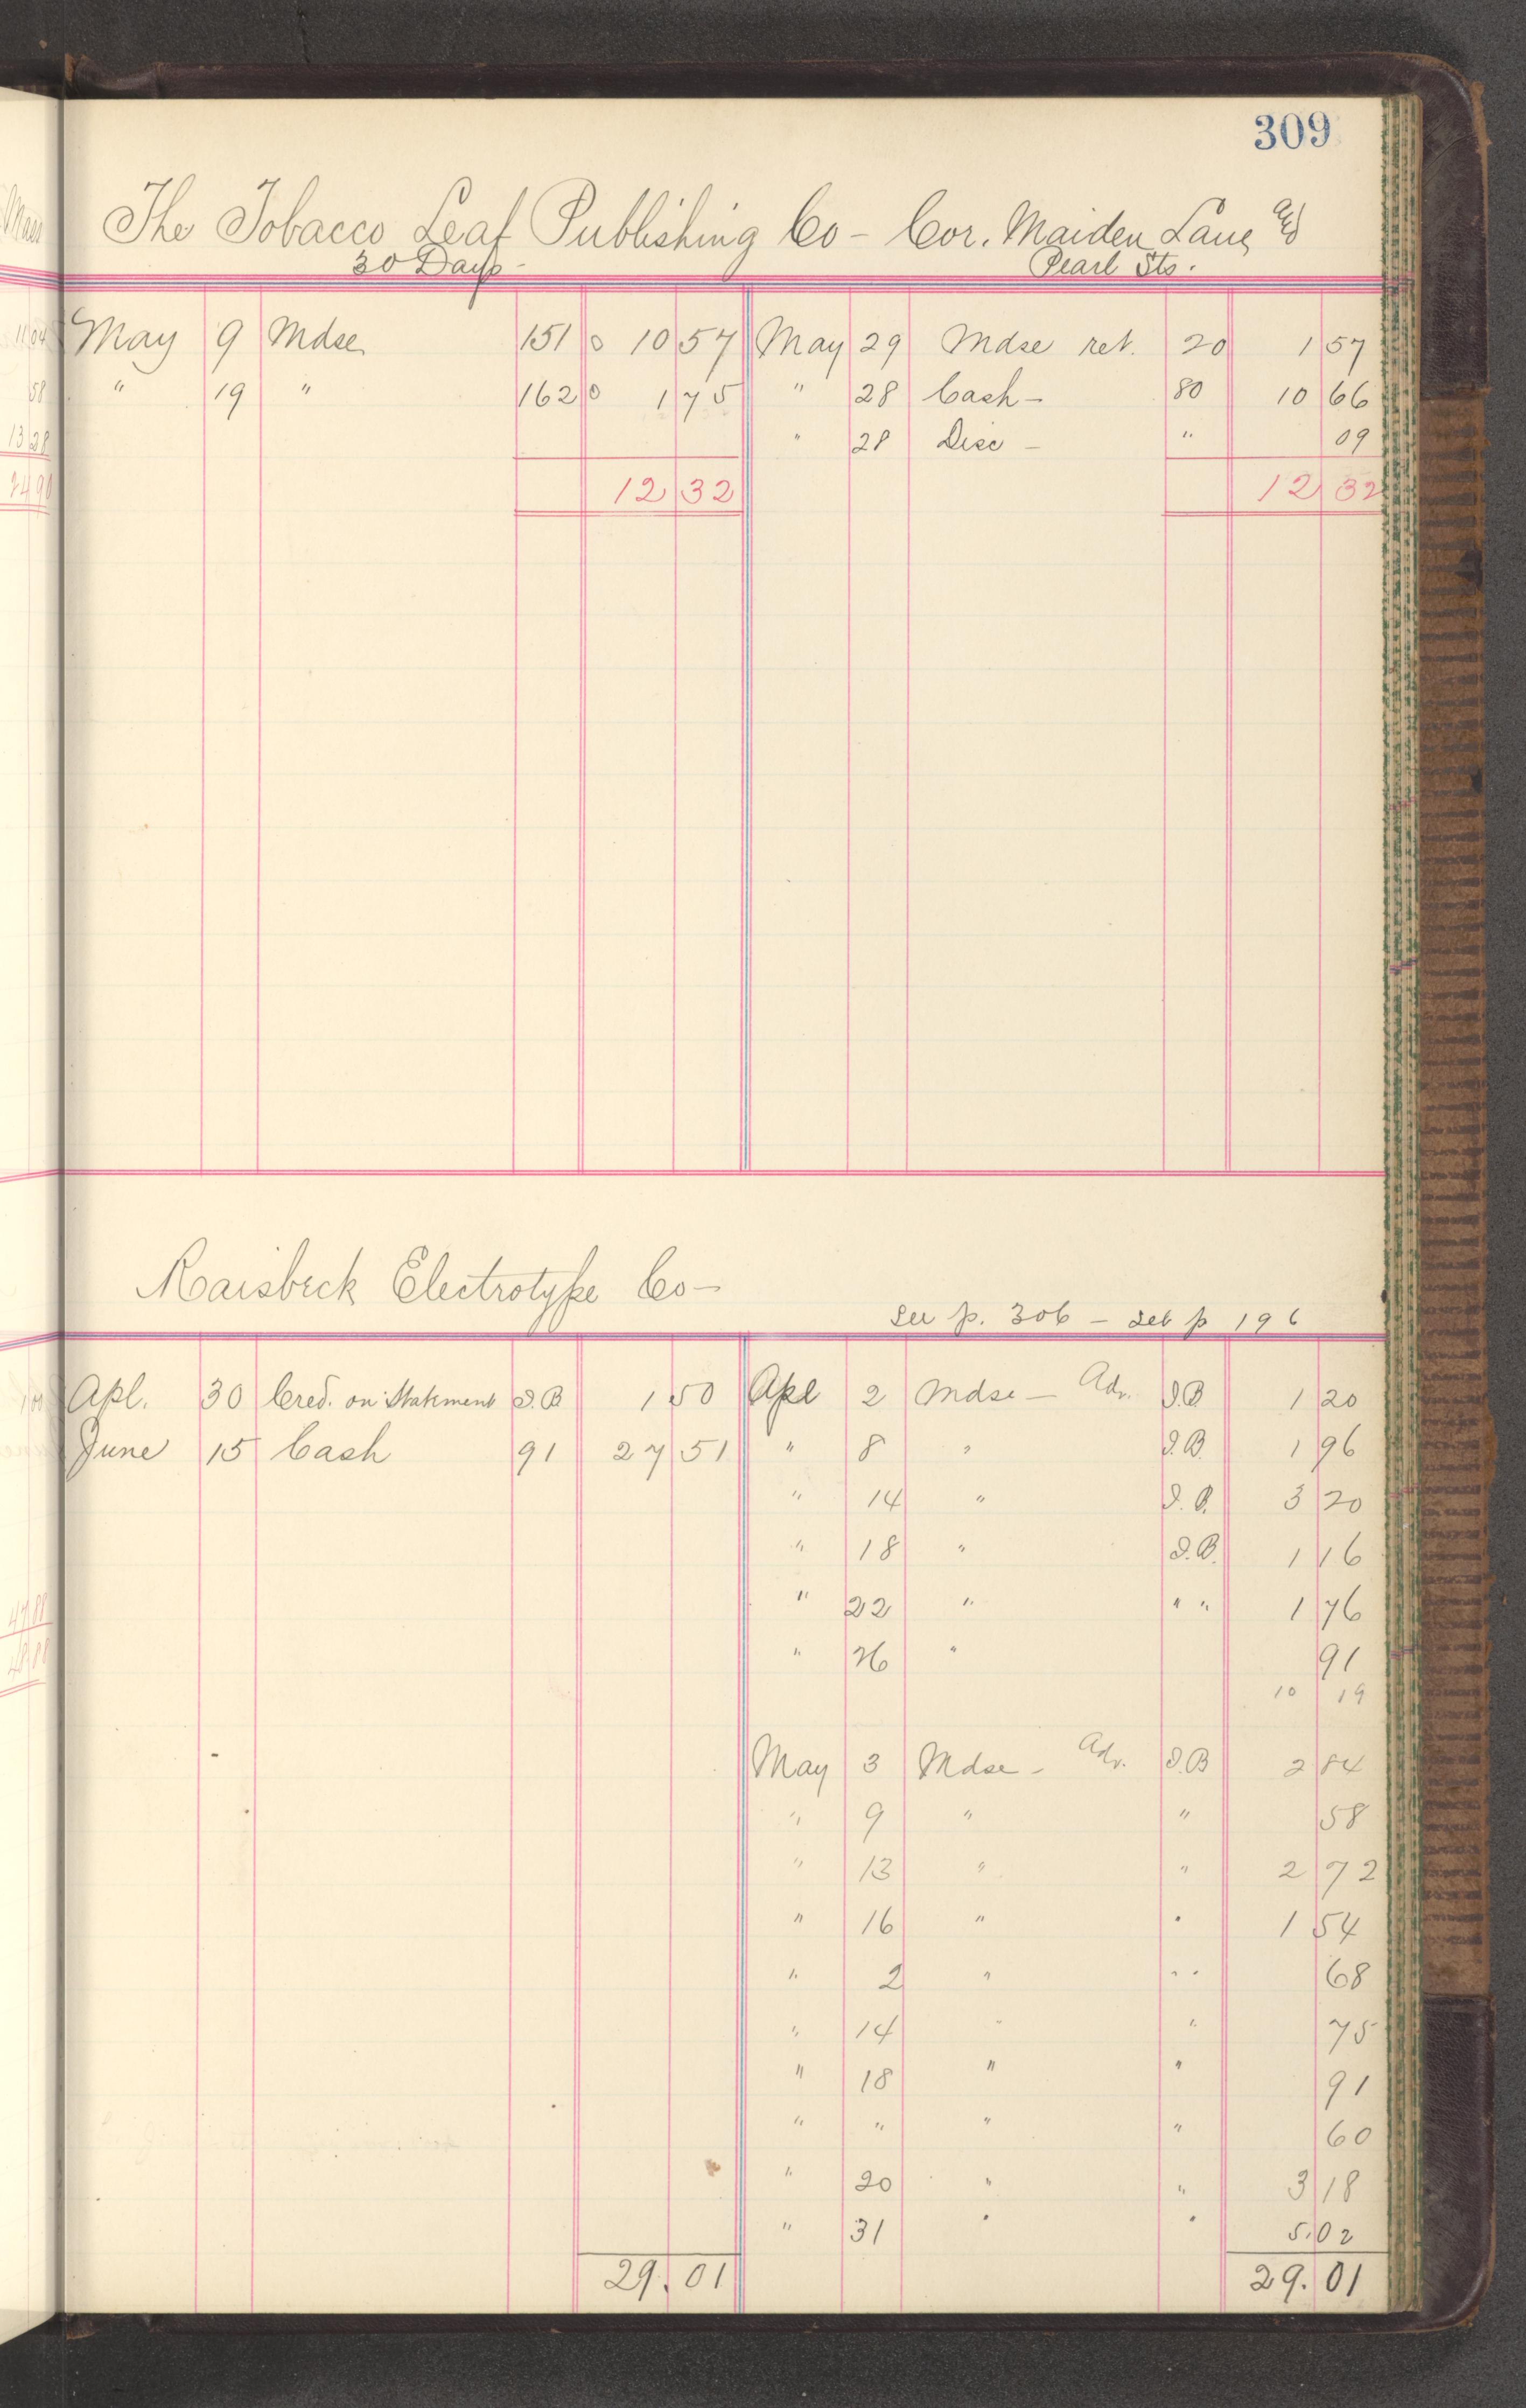 309
The Tobacco Leaf Publishing Co - Cor. Maiden Lane and
30 Days - Pearl Sts.
May 9 Mdse 151 0 10 57 May 29 Mdse ret. 20 1 57
" 19 " 162 0 1 75 " 28 Cash - 80 10 66
" 28 Disc - " 09
12 32 12 32
Raisbeck Electrotype Co -
See p. 306 - Led p 196
Apl. 30 Cred. on Statement I.B 1 50 Apl 2 Mdse - Adv. I.B 1 20
June 15 Cash 91 27 51 " 8 " I.B. 1 96
" 14 " I.B. 3 20
" 18 " I.B. 1 16
" 22 " " " 1 76
" 26 " 91
10 19
May 3 Mdse - Adv. I.B 2 84
" 9 " " 58
" 13 " " 2 72
" 16 " " 1 54
" 2 " " 68
" 14 " " 75
" 18 " " 91
" " " " 60
" 20 " " 3 18
" 31 " " 5.02
29.01 29.01